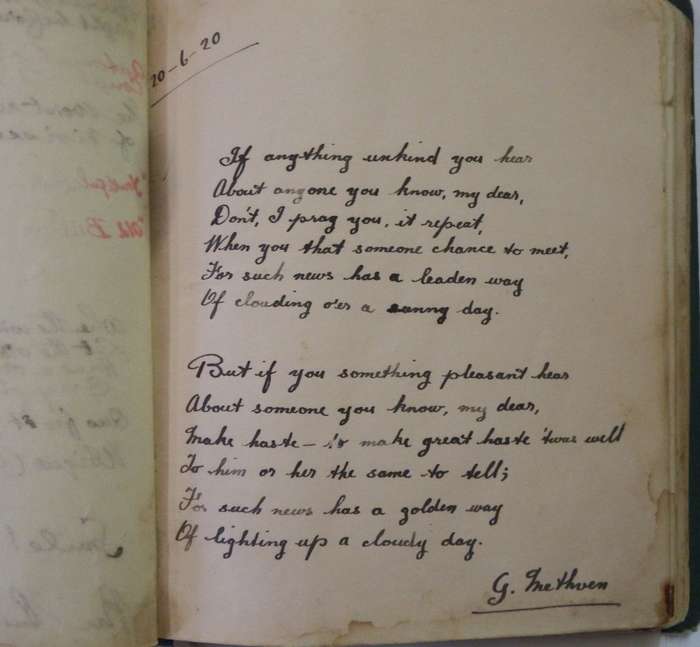 20-6-20
If anything unkind you hear
About anyone you know, my dear,
Don't, I pray you, it repeat,
When you that someone chance to meet,
For such news has a leaden way
Of clouding o'er a sunny day.
But if you something pleasant hear
About someone you know, my dear,
Make haste – to make great haste 'twas well
To him or her the same to tell;
For such news has a golden way
Of lighting up a cloudy day.
G. Methven
Smile